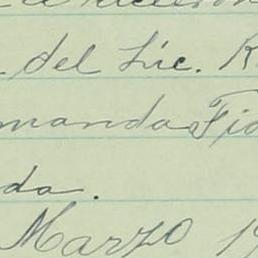 del Lic. R
mandas Fid
da.
Marzo 19